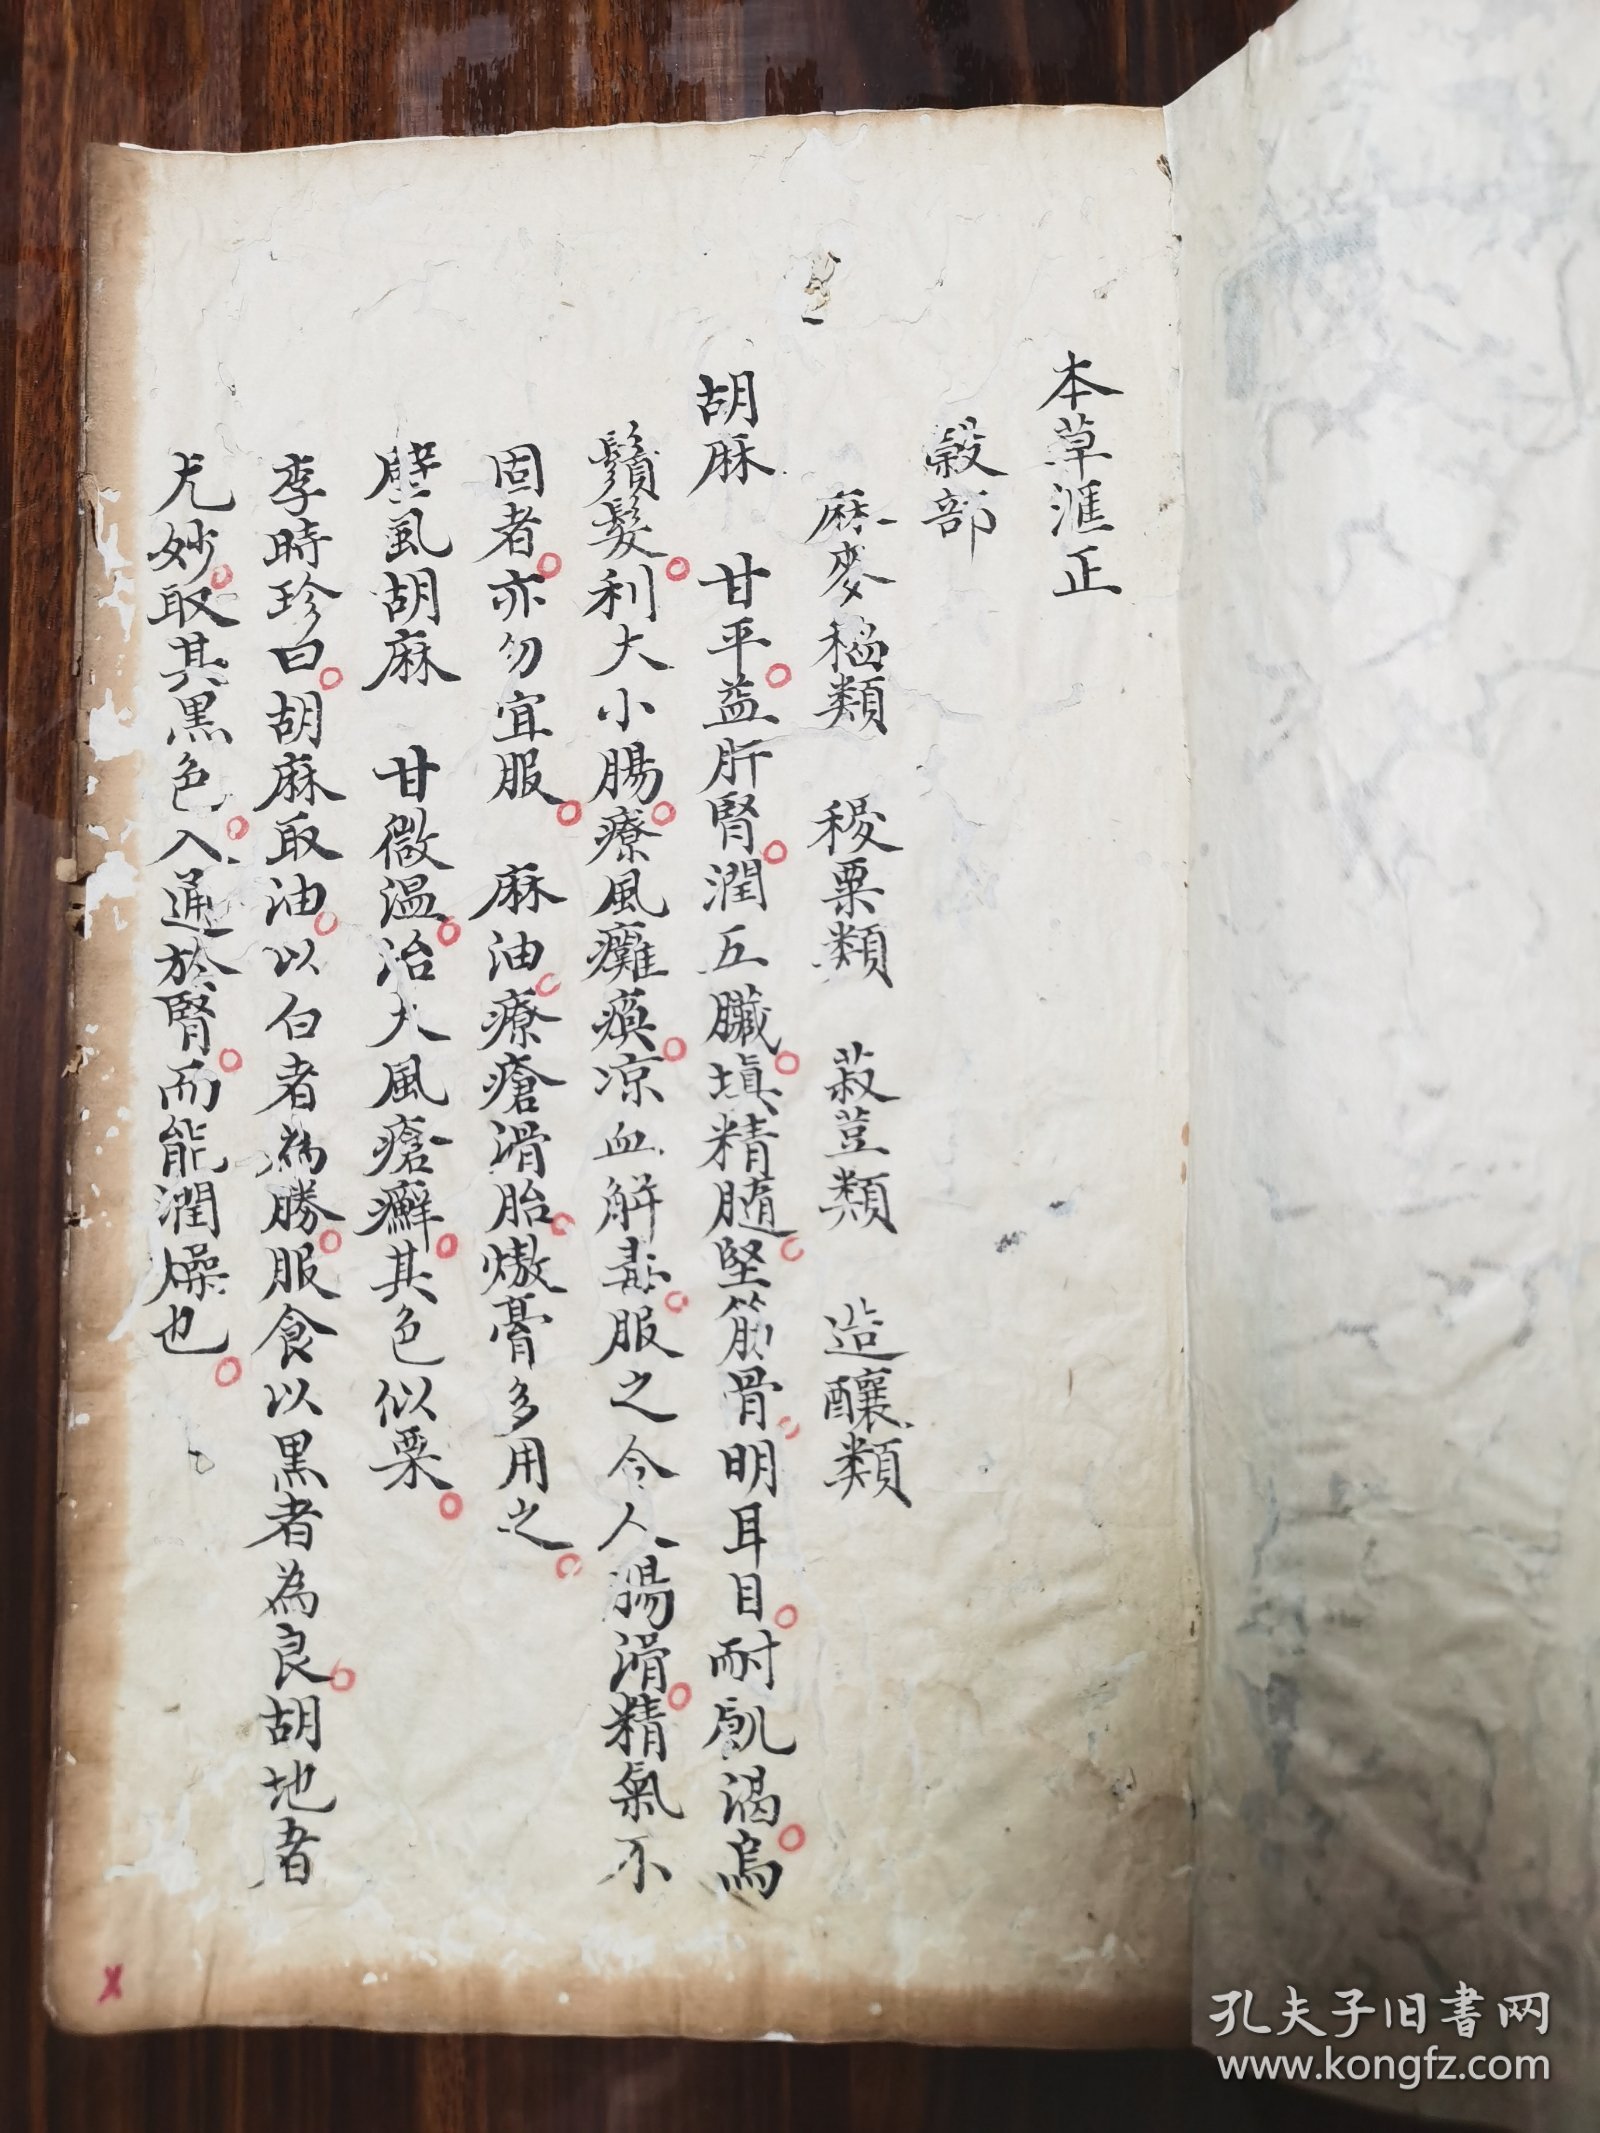 本草滙正
穀部
麻麥稻類 稷粟類 菽荳類 造釀類
胡麻 甘平益肝腎潤五臟填精髓堅筋骨明耳目耐飢渴烏
鬚髮利大小腸療風癱瘓凉血解毒服之令人腸滑精氣不
固者亦勿宜服 麻油療瘡滑胎熬膏多用之
壁虱胡麻 甘微温治大風瘡癬其色似栗
李時珍曰胡麻取油以白者為勝服食以黑者為良胡地者
尤妙取其黑色入通於腎而能潤燥也
孔夫子旧書网
www.kongfz.com